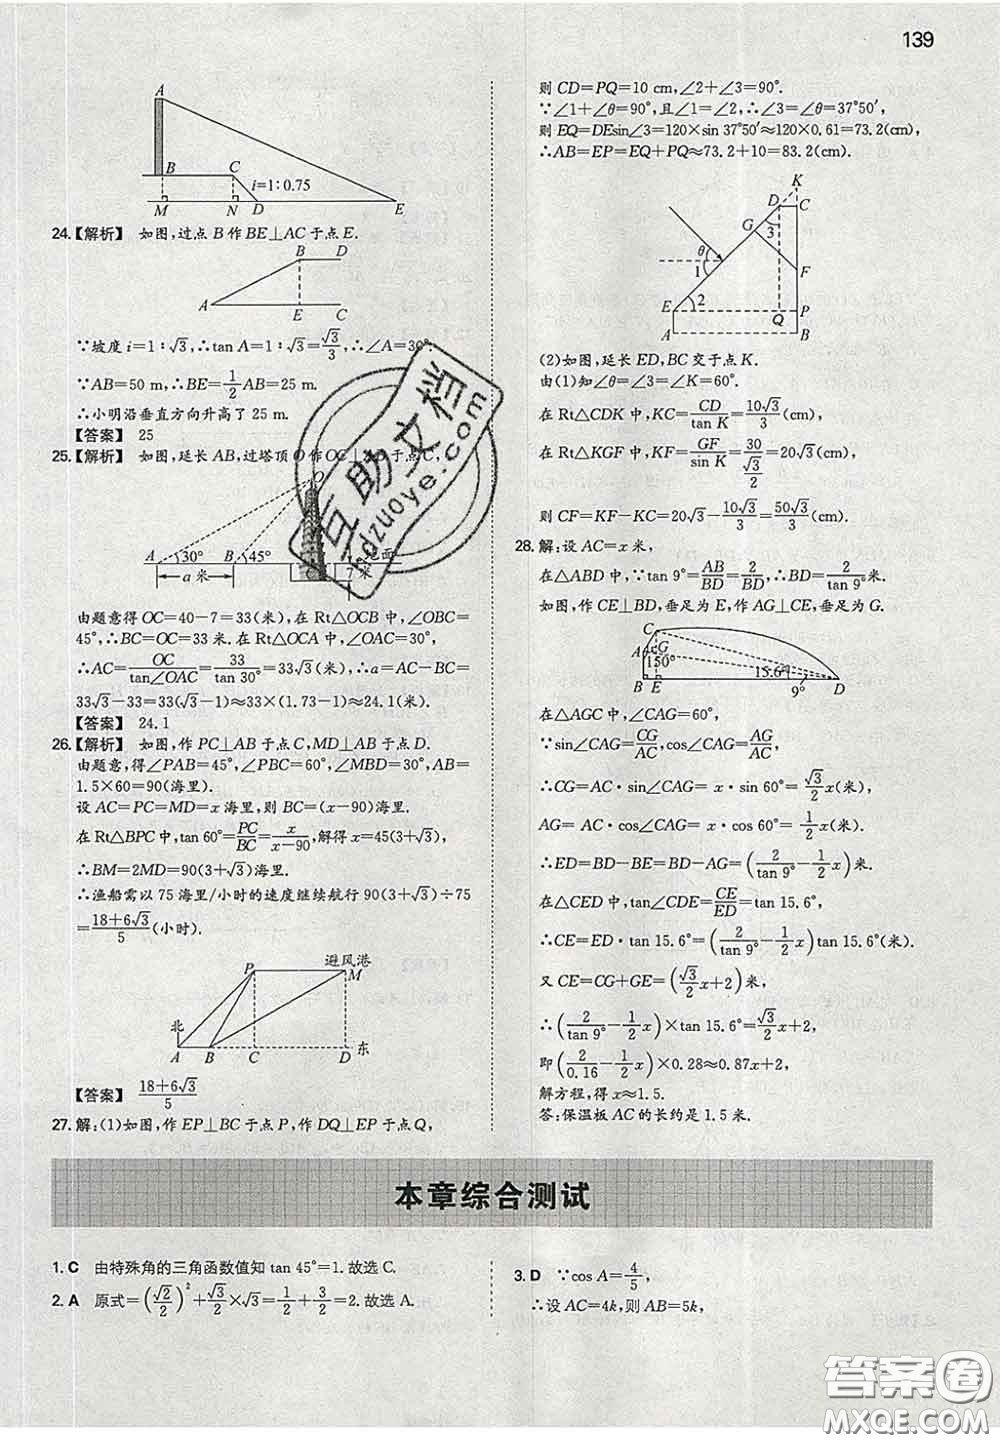 139
A
B
C
i=1∶0.75
M
N
D
E
24.【解析】 如图,过点 B 作 BE⊥AC 于点 E.
B
D
A
E
C
∵坡度 i=1∶√3,∴tan A=1∶√3=√3/3,∴∠A=30°.
∵AB=50 m,∴BE=1/2AB=25 m.
∴小明沿垂直方向升高了 25 m.
【答案】 25
25.【解析】 如图,延长 AB,过塔顶 O 作 OC⊥AB于点 C,
O
A
30°
B
45°
地面
a 米
7 米
由题意得 OC=40-7=33(米),在 Rt△OCB 中,∠OBC=
45°,∴BC=OC=33 米.在 Rt△OCA 中,∠OAC=30°,
∴AC=OC/tan∠OAC=33/tan 30°=33√3(米),∴a=AC-BC=
33√3-33=33(√3-1)≈33×(1.73-1)≈24.1(米).
【答案】 24.1
26.【解析】 如图,作 PC⊥AB 于点 C,MD⊥AB 于点 D.
由题意,得∠PAB=45°,∠PBC=60°,∠MBD=30°,AB=
1.5×60=90(海里).
设 AC=PC=MD=x 海里,则 BC=(x-90)海里.
在 Rt△BPC 中,tan 60°=PC/BC=x/(x-90),解得 x=45(3+√3)
∴BM=2MD=90(3+√3)海里.
∴渔船需以 75 海里/小时的速度继续航行 90(3+√3)÷75
=(18+6√3)/5(小时).
避风港
P
M
北
A
B
C
D
东
【答案】 (18+6√3)/5
27.解:(1)如图,作 EP⊥BC 于点 P,作 DQ⊥EP 于点 Q,
则 CD=PQ=10 cm,∠2+∠3=90°.
∵∠1+∠θ=90°,且∠1=∠2,∴∠3=∠θ=37°50′,
则 EQ=DEsin∠3=120×sin 37°50′≈120×0.61=73.2(cm),
∴AB=EP=EQ+PQ≈73.2+10=83.2(cm).
K
D
C
G
3
θ
1
F
E
2
P
Q
A
B
(2)如图,延长 ED,BC 交于点 K.
由(1)知∠θ=∠3=∠K=60°.
在 Rt△CDK 中,KC=CD/tan K=10√3/3(cm),
在 Rt△KGF 中,KF=GF/sin K=30/(√3/2)=20√3(cm),
则 CF=KF-KC=20√3-10√3/3=50√3/3(cm).
28.解:设 AC=x 米,
在△ABD 中,∵tan 9°=AB/BD=2/BD,∴BD=2/tan 9°米.
如图,作 CE⊥BD,垂足为 E,作 AG⊥CE,垂足为 G.
C
A
G
150°
15.6°
B
E
9°
D
在△AGC 中,∠CAG=60°,
∵sin∠CAG=CG/AC,cos∠CAG=AG/AC,
∴CG=AC·sin∠CAG=x·sin 60°=√3/2x(米),
AG= AC·cos∠CAG= x·cos 60°= 1/2x(米).
∴ED=BD-BE=BD-AG=(2/tan 9°-1/2x)米.
在△CED 中,tan∠CDE=CE/ED=tan 15.6°,
∴CE=ED·tan 15.6°=(2/tan 9°-1/2x)tan 15.6°(米).
又 CE=CG+GE=(√3/2x+2)米,
∴(2/tan 9°-1/2x)×tan 15.6°=√3/2x+2,
即(2/0.16-1/2x)×0.28≈0.87x+2,
解方程,得 x≈1.5.
答:保温板 AC 的长约是 1.5 米.
本章综合测试
1.C 由特殊角的三角函数值知 tan 45°=1.故选 C.
2.A 原式=(√2/2)²+√3/2×√3=1/2+3/2=2.故选 A.
3.D ∵cos A=4/5,
∴设 AC=4k,则 AB=5k,
互助文档
hdzuoye.com
答案圈
MXQE.COM